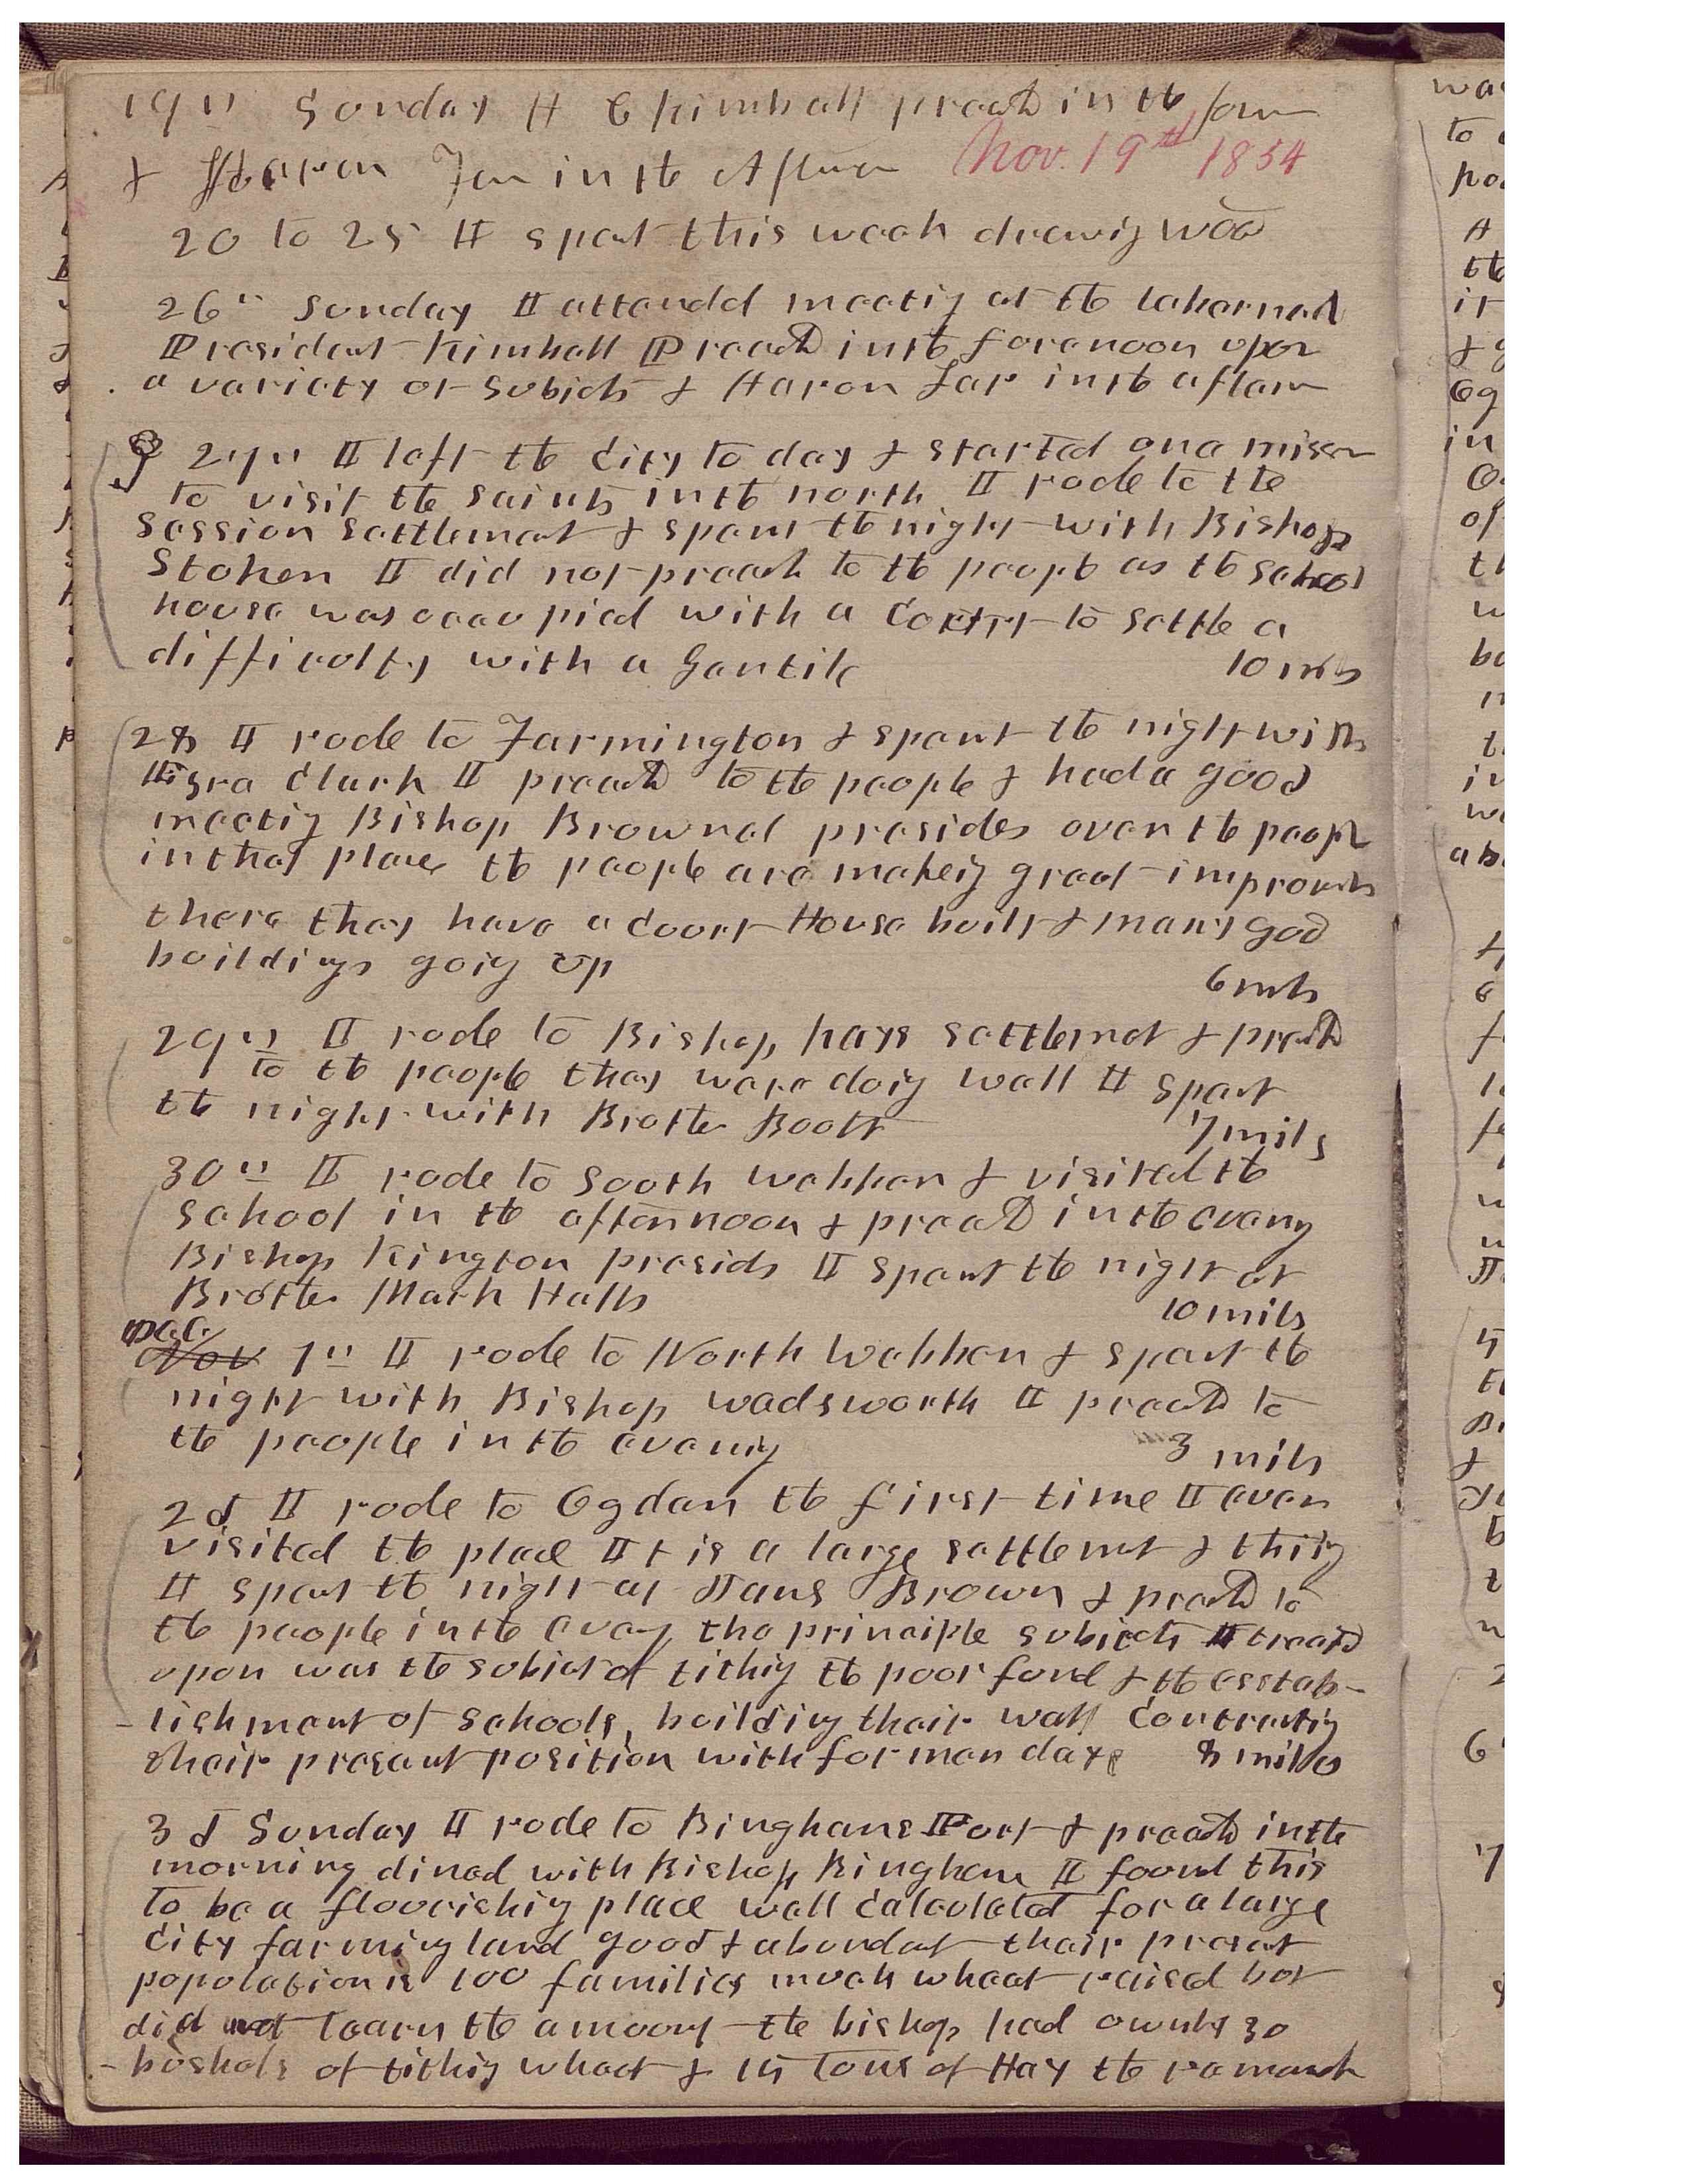 19th Sunday H C Kimball preachd in the forn
& Aaron Far in the Aftern Nov. 19th 1854
20 to 25 I spent this week drawig wood
26th Sunday I attended meetig at the tabernacl
President Kimball Preachd in the forenoon upon
a variety of Subjects & Aaron Far in the aftern
27th I left the City to day & started on a mision
to visit the saints in the north I rode to the
Session settlement & spent the night with Bishop
Stoker I did not preach to the people as the school
house was occupied with a Court to settle a
difficulty with a Gentile 10 mls
28 I rode to Farmington & spent the night with
Esra Clark I preachd to the people & had a good
meetig Bishop Brownel presides over the peopl
in that place the people are makeig great improvmts
there they have a Court House built & many good
buildings goig up
6 mls
29th I rode to Bishop Kays settlemet & preachd
to the people they were doig well I spent
the night with Brother Booth
7 mils
30th I rode to South Webber & visited the
school in the afternoon & preachd in the eveng
Bishop Kington presids I spent the night at
Brother Mark Halls
10 mils
Dec
Nov 1st I rode to North Webber & spent the
night with Bishop wadsworth I preachd to
the people in the evenig
3 mils
2d I rode to Ogden the first time I ever
visited the place It is a large settlemet & thriving
I spent the night at Brown & preachd to
the people in the eveng the principle subjects I treatd
upon was the subject of tithig the poor fund & the estab-
lishment of schools, building their wall Contrastig
their present position with former days 8 miles
3d Sunday I rode to Binghams Fort & preachd in the
morning dined with Bishop Bingham I found this
to be a flourishig place well Calculated for a large
City farming land good & abundat their present
population is 100 families much wheat raised but
did not learn the amount the bishop had 30
bushels of tithig wheat & 15 Tons of Hay